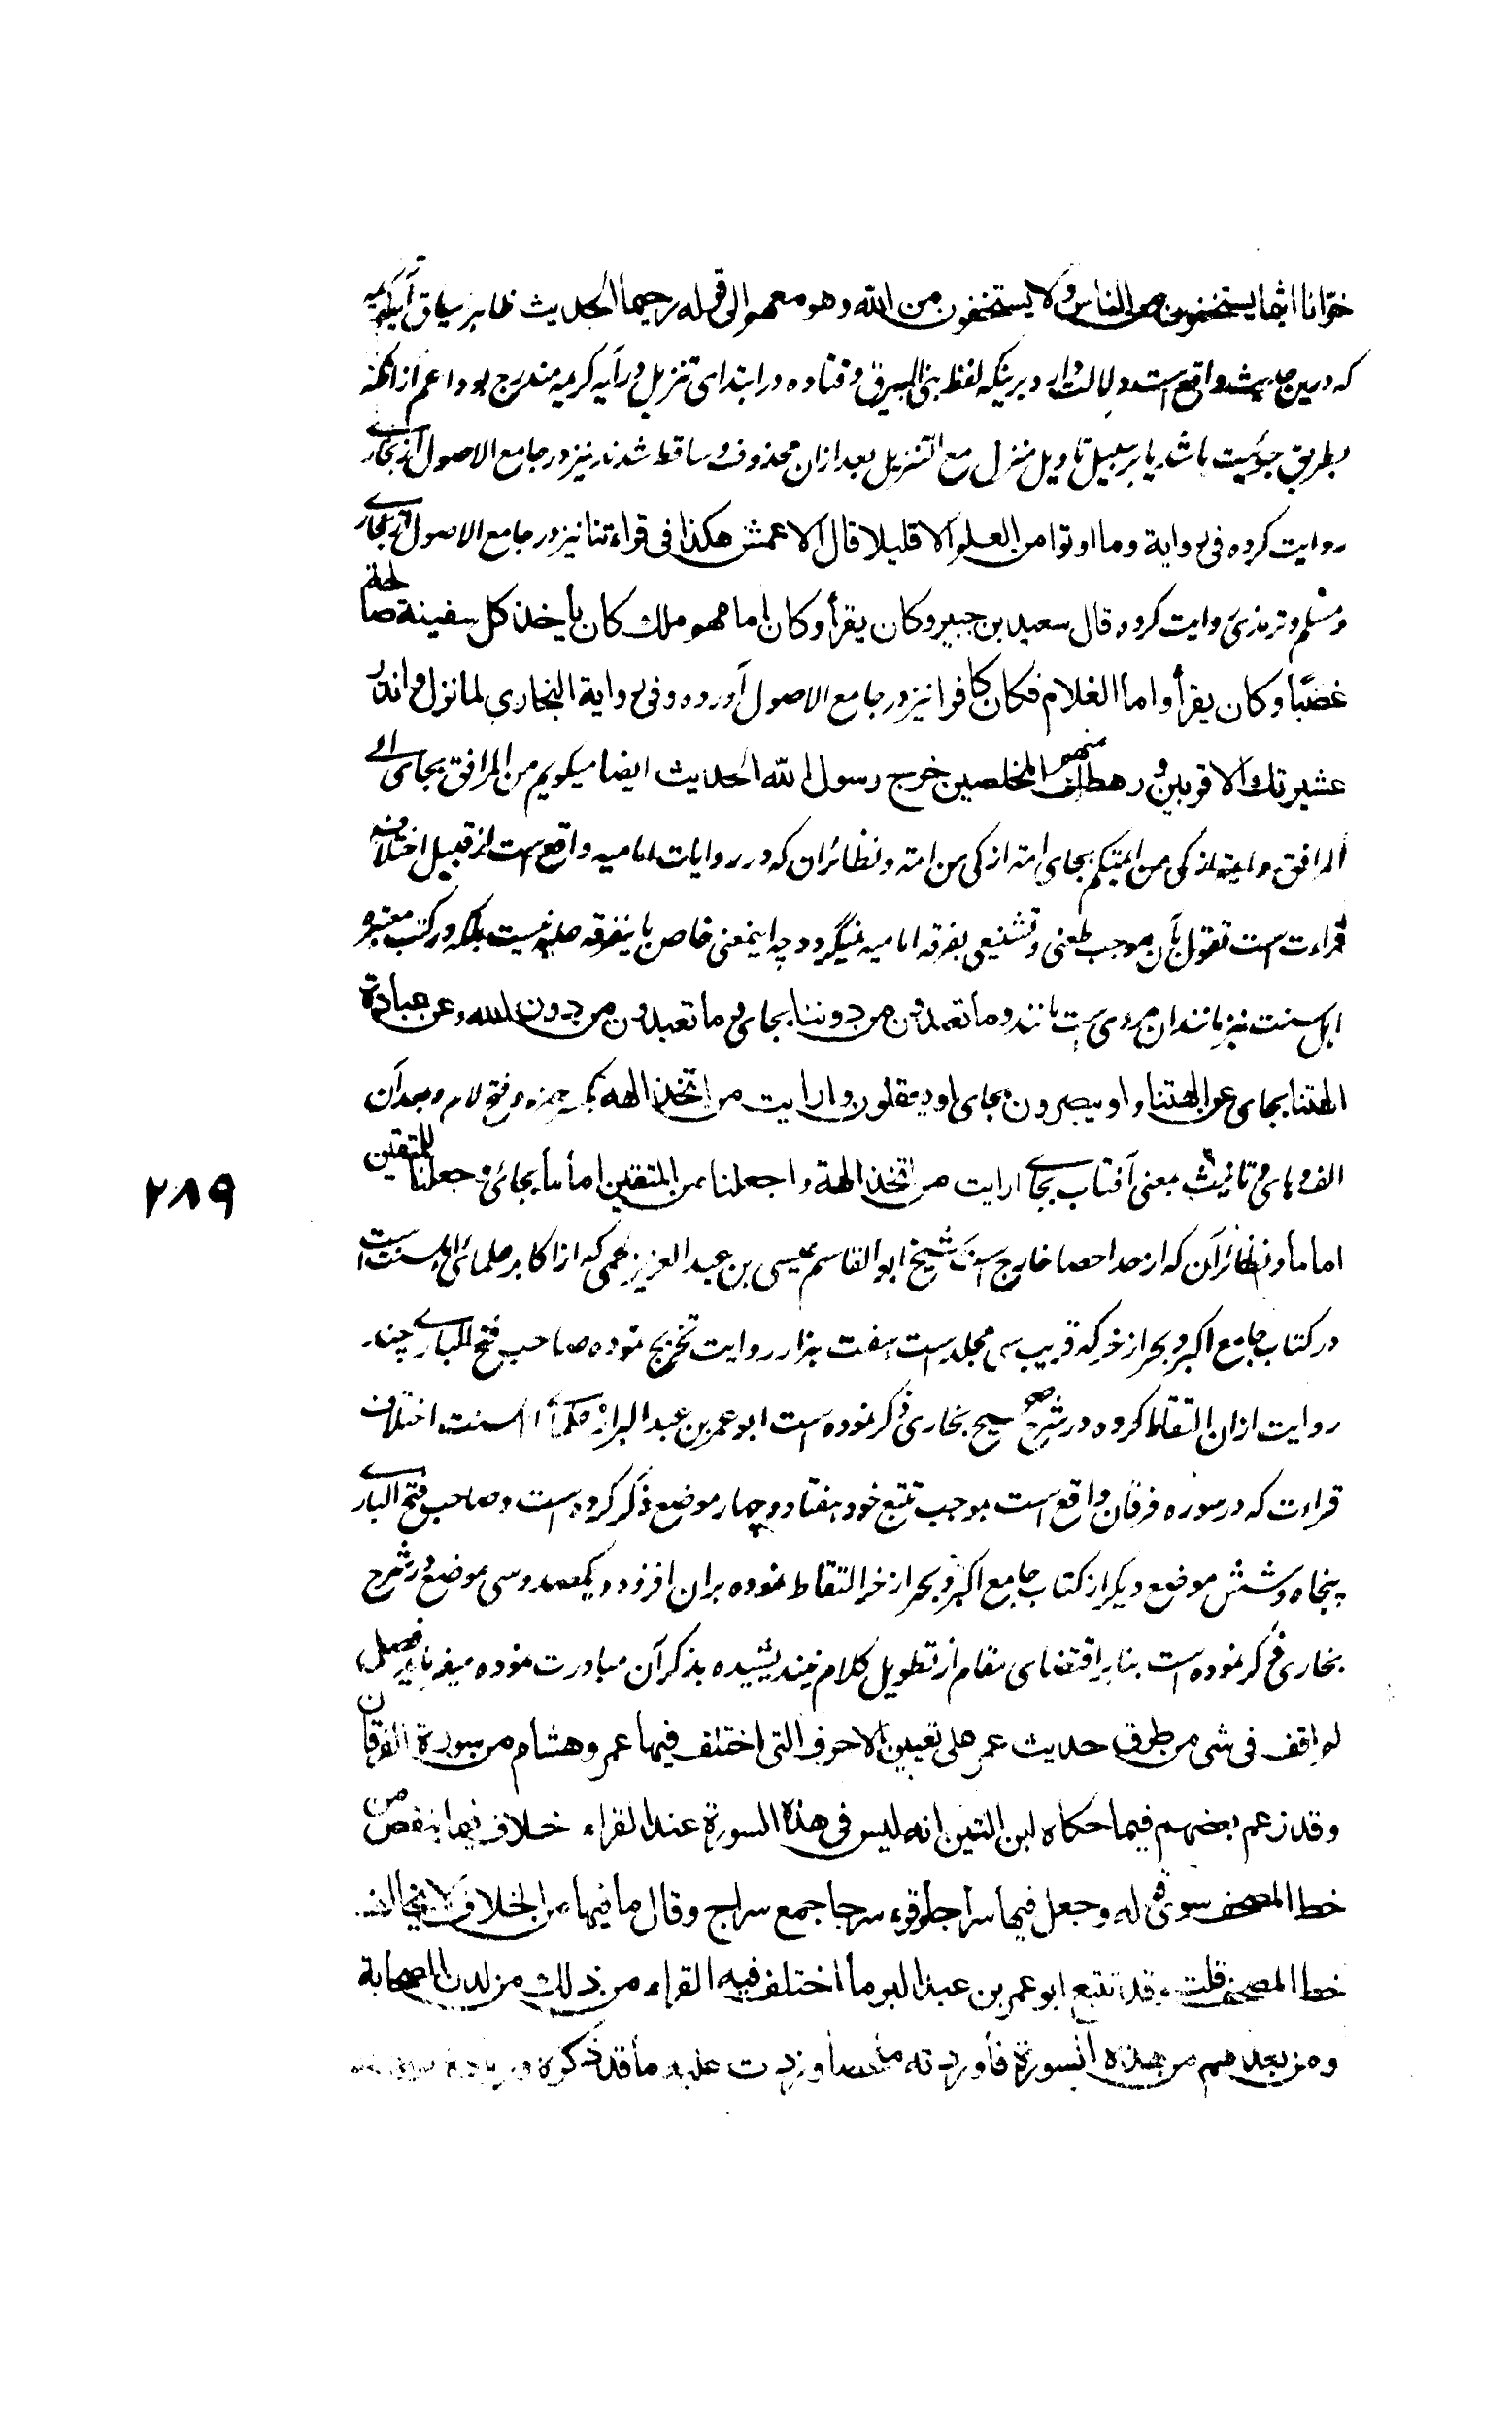 خوّانا اثیما یستخفون من الناس ولا یستخفون من الله وهو معهم الی قوله رحیما الحدیث ظاهر سیاق آیه کریمه
که درین حدیث واقع است دلالت دارد برینکه لفظ بنی ابیرق وقتاده در ابتدای تنزیل در آیه کریمه مندرج بود اعم ازانکه
بطریق جزئیت باشد یا بر سبیل تاویل منزل مع التنزیل بعد ازان محذوف و ساقط شدند نیز در جامع الاصول از بخاری
روایت کرده فی روایة وما اوتوا من العلم الا قلیلا قال الاعمش هکذا فی قراءتنا نیز در جامع الاصول از بخاری
و مسلم و ترمذی روایت کرده قال سعید بن جبیر وکان یقرأ وکان امامهم ملك کان یأخذ کل سفینة صالحة
غصبًا وکان یقرأ واما الغلام فکان کافرا نیز در جامع الاصول آورده وفی روایة البخاری لما نزل وانذر
عشیرتك الاقربین ورهطك منهم المخلصین خرج رسول الله الحدیث ایضا میگویم من المرافق بجای الی
المرافق و ائمة ازکی من ائمتکم بجای امة ازکی من امة ونظائران که در روایات امامیه واقع است از قبیل اختلاف
قراءت است تفول بآن موجب طعنی و تشنیعی بفرقه امامیه نمیگردد چه اینمعنی خاص باینفرقه علیه نیست بلکه در کتب معتبره
اهل سنت نیز مانندان مروی است مانند وما تعبدون من دوننا بجای وما تعبدون من دون الله وعن عبادة
الهتنا بجای عن الهتنا و او یبصرون بجای او یعقلون و ارایت من اتخذ الهه بکسر همزه و فتح لام و بعد آن
الف و های تانیث بمعنی آفتاب بجای ارایت من اتخذ الهة واجعلنا من المتقین اماما بجای وجعلنا للمتقین
اماما و نظائرآن که از حد احصا خارج است شیخ ابوالقاسم عیسی بن عبد العزیز لخمی که از اکابر علمای اهل سنت است
در کتاب جامع اکبر و بحر ازخر که قریب سی مجلد است هفت هزار روایت تخریج نموده صاحب فتح الباری چند
روایت ازان التقاط کرده در شرح صحیح بخاری ذکر نموده است ابو عمر بن عبد البر از علمای اهل سنت اختلاف
قراءت که در سوره فرقان واقع است بموجب تتبع خود هفتاد و چهار موضع ذکر کرده است و صاحب فتح الباری
پنجاه و شش موضع دیگر از کتاب جامع اکبر و بحر ازخر التقاط نموده بران افزوده یکصد و سی موضع در شرح
بخاری ذکر نموده است بنابر اقتضای مقام از تطویل کلام نیندیشیده بذکر آن مبادرت نموده میفرماید فصل
لم اقف فی شی من طرق حدیث عمر علی تعیین الاحرف التی اختلف فیها عمر وهشام من سورة الفرقان
وقد زعم بعضهم فیما حکاه ابن التین انه لیس فی هذه السورة عند القراء خلاف فیما ینقص من
خط المصحف سوی قوله وجعل فیها سراجا وقرء سرجا جمع سراج وقال ما فیها من الخلاف لا یخالف
خط المصحف قلت وقد تتبع ابو عمر بن عبد البر ما اختلف فیه القراء من ذلك من لدن الصحابة
ومن بعدهم من هذه السورة فأوردته ملخصا وزدت علیه ما قد ذکره وزیادة
۲۸۹